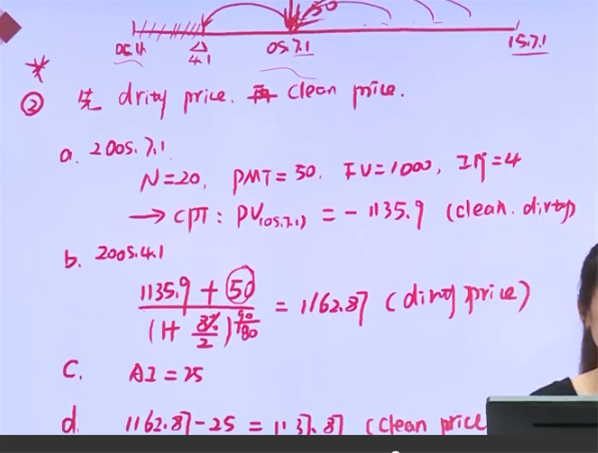 50
05.1.1 4.1 05.7.1 15.7.1
② 先 drity price. 再 clean price.
a. 2005.7.1
N=20, PMT=50, FV=1000, I/Y=4
→ CPT: PV(05.7.1) = -1135.9 (clean. dirty)
b. 2005.4.1
1135.9 + 50
(1+ 8%/2)^90/180 = 1162.87 (dirty price)
C. AI = 25
d. 1162.87-25 = 1137.87 (clean price